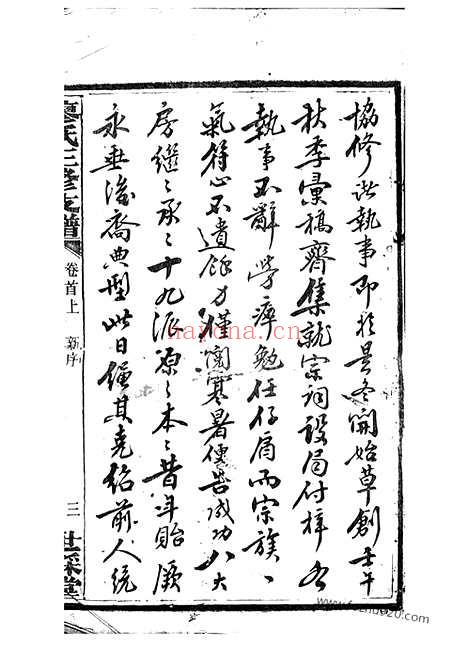 協修諸執事即於是冬開始草創壬午
秋季彙稿齊集就宗祠設局付梓各
執事不辭勞瘁勉任仔肩而宗族、
氣符心不遺餘力僅閱寒暑便告成功八大
房繼〻承〻十九派源〻本〻昔年貽厥
永垂後裔典型此日繩其克紹前人統
廖氏三修支譜
卷首上 新序
三
世綵堂
hayona.cn